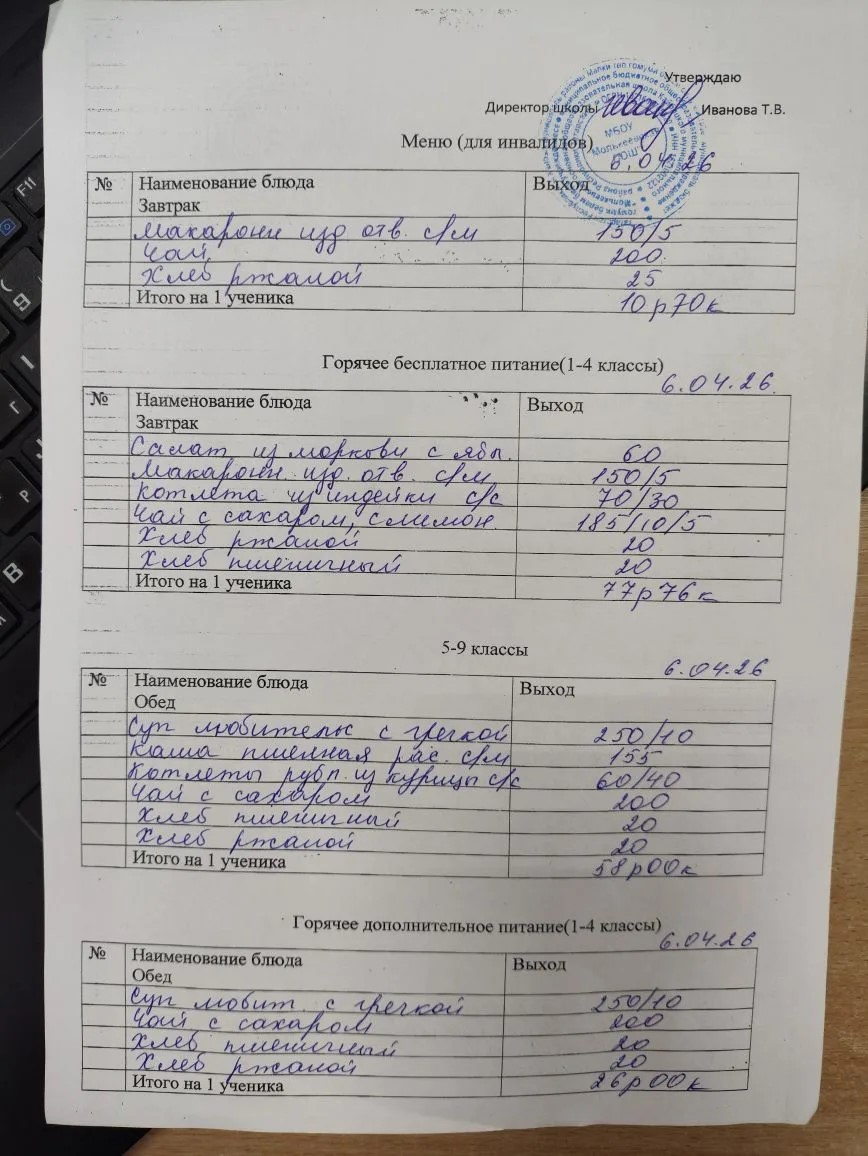 Утверждаю
Директор школы Иванова Т.В.
МБОУ
СОШ
Меню (для инвалидов)
6.04.26
№ Наименование блюда Выход
Завтрак
Макарони изд отв. с/м 150/5
Чай 200
Хлеб ржаной 25
Итого на 1 ученика 10р70к
Горячее бесплатное питание(1-4 классы)
6.04.26
№ Наименование блюда Выход
Завтрак
Салат из моркови с ябл. 60
Макарони изд. отв. с/м 150/5
Котлета из индейки с/с 70/30
Чай с сахаром, с лимон. 185/10/5
Хлеб ржаной 20
Хлеб пшеничный 20
Итого на 1 ученика 77р76к
5-9 классы
6.04.26
№ Наименование блюда Выход
Обед
Суп любительс с гречкой 250/10
Каша пшенная рас. с/м 155
Котлеты рубл. из курицы с/с 60/40
Чай с сахаром 200
Хлеб пшеничный 20
Хлеб ржаной 20
Итого на 1 ученика 58р00к
Горячее дополнительное питание(1-4 классы)
6.04.26
№ Наименование блюда Выход
Обед
Суп любит. с гречкой 250/10
Чай с сахаром 200
Хлеб пшеничный 20
Хлеб ржаной 20
Итого на 1 ученика 26р00к
F11